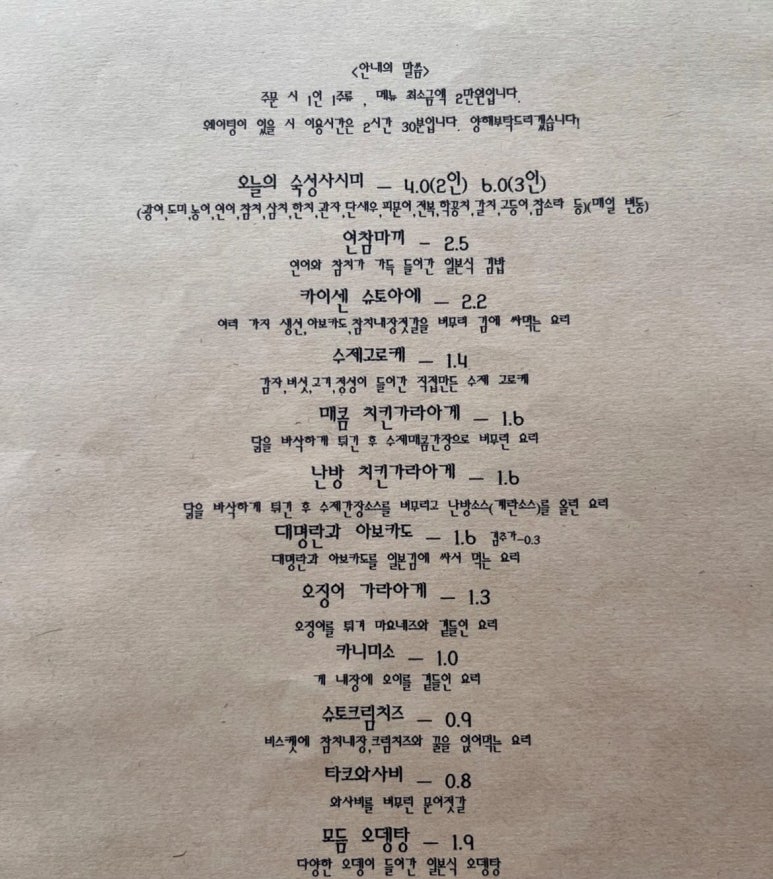 <안내의 말씀>
주문 시 1인 1주류 , 메뉴 최소금액 2만원입니다.
웨이팅이 있을 시 이용시간은 2시간 30분입니다. 양해부탁드리겠습니다!
오늘의 숙성사시미 - 4.0(2인) 6.0(3인)
(광어,도미,농어,연어,참치,삼치,한치,관자,단새우,피문어,전복,학꽁치,갈치,고등어,참소라 등)(매일 변동)
연참마끼 - 2.5
연어와 참치가 가득 들어간 일본식 김밥
카이센 슈토아에 - 2.2
여러 가지 생선,아보카도,참치내장젓갈을 버무려 김에 싸먹는 요리
수제고로케 - 1.4
감자,버섯,고기,정성이 들어간 직접만든 수제 고로케
매콤 치킨가라아게 - 1.6
닭을 바삭하게 튀긴 후 수제매콤간장으로 버무린 요리
난방 치킨가라아게 - 1.6
닭을 바삭하게 튀긴 후 수제간장소스를 버무리고 난방소스(계란소스)를 올린 요리
대명란과 아보카도 - 1.6 김추가-0.3
대명란과 아보카도를 일본김에 싸서 먹는 요리
오징어 가라아게 - 1.3
오징어를 튀겨 마요네즈와 곁들인 요리
카니미소 - 1.0
게 내장에 오이를 곁들인 요리
슈토크림치즈 - 0.9
비스켓에 참치내장,크림치즈와 꿀을 얹어먹는 요리
타코와사비 - 0.8
와사비를 버무린 문어젓갈
모듬 오뎅탕 - 1.9
다양한 오뎅이 들어간 일본식 오뎅탕